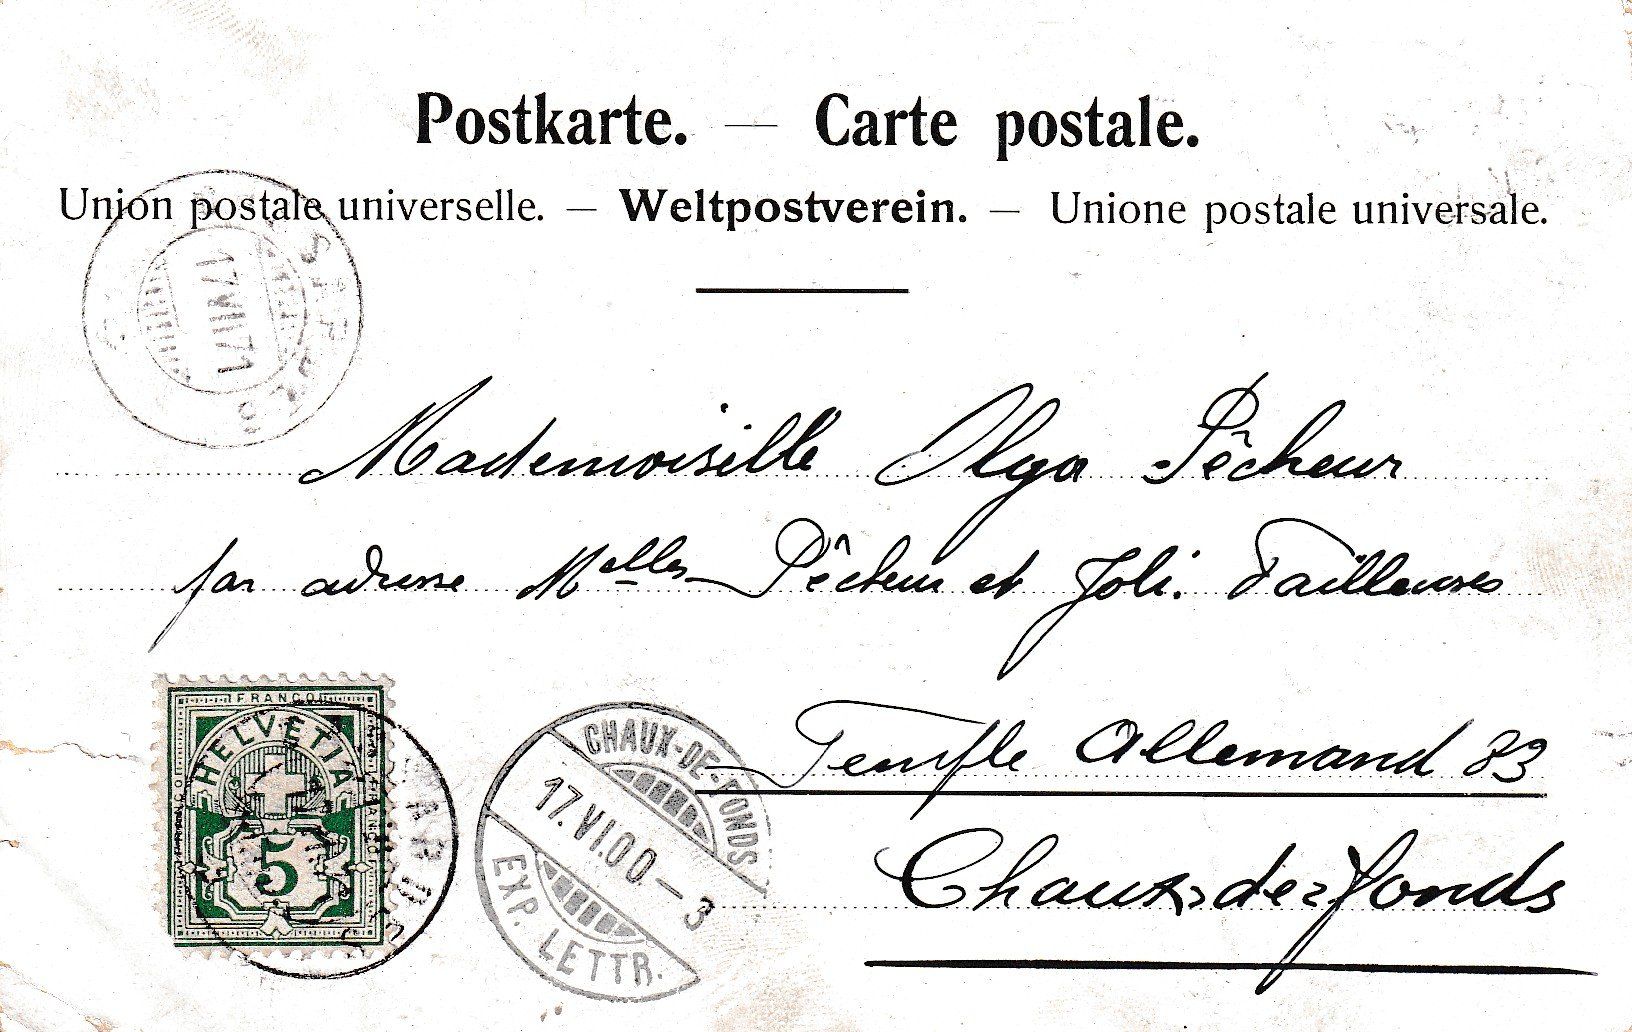 Postkarte. — Carte postale.
Union postale universelle. — Weltpostverein. — Unione postale universale.
17.VII.71
Mademoiselle Olga Pêcheur
par adresse Melles Pêcheur et Joli. Tailleuses
Temple Allemand 83
Chaux-de-fonds
FRANCO
FRANCO
FRANCO
HELVETIA
5
CHAUX-DE-FONDS
17.VI.00-3
EXP. LETTR.